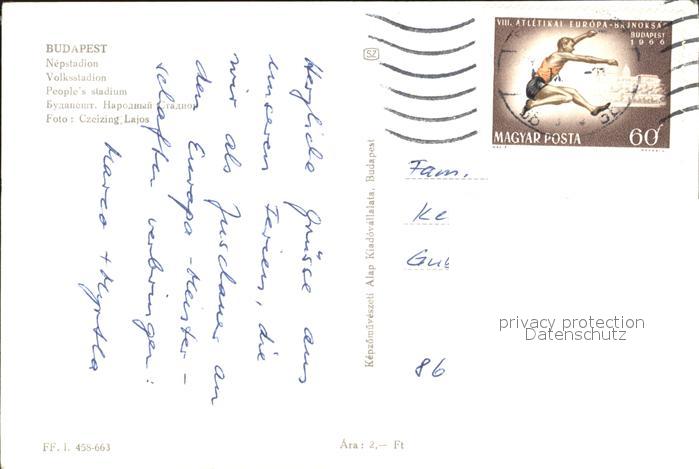 BUDAPEST
Népstadion
Volksstadion
People's stadium
Будапешт. Народный Стадион
Foto : Czeizing Lajos
Herzliche Grüsse aus
unseren Ferien, die
wir als Zuschauer an
den Europa-Meister-
schaften verbringen:
Marco + Myrtha
FF. I. 458-663
Ára : 2,— Ft
SZ
Képzőművészeti Alap Kiadóvállalata, Budapest
VIII. ATLÉTIKAI EURÓPA-BAJNOKSÁG
BUDAPEST
1966
MAGYAR POSTA
60f
Fam.
86
privacy protection
Datenschutz